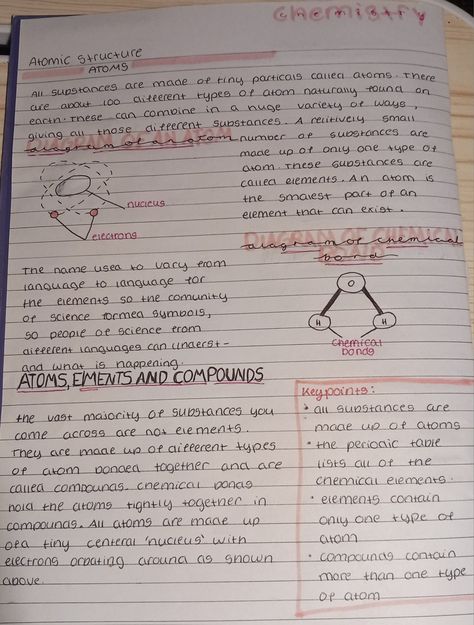 Chemistry
Atomic structure
ATOMS
All substances are made of tiny particals called atoms. There
are about 100 different types of atom naturally found on
earth. These can combine in a huge variety of ways,
giving all those different substances. A relitively small
Diagram of an atom
number of substances are
made up of only one type of
atom. These substances are
called elements. An atom is
the smalest part of an
element that can exist.
nucleus
electrons
The name used to vary from
language to language for
the elements so the comunity
of science formed symbols,
so people of science from
different languages can underst-
and what is happening.
Diagram of chemical
bond
O
H
H
chemical
bonds
ATOMS, ElMENTS AND COMPOUNDS
the vast majority of substances you
come across are not elements.
They are made up of different types
of atom bonded together and are
called compounds. chemical bonds
hold the atoms tightly together in
compounds. All atoms are made up
of a tiny centeral 'nucleus' with
electrons orbating around as shown
above.
Key points:
• all substances are
made up of atoms
• the periodic table
lists all of the
chemical elements.
• elements contain
only one type of
atom
• compounds contain
more than one type
of atom